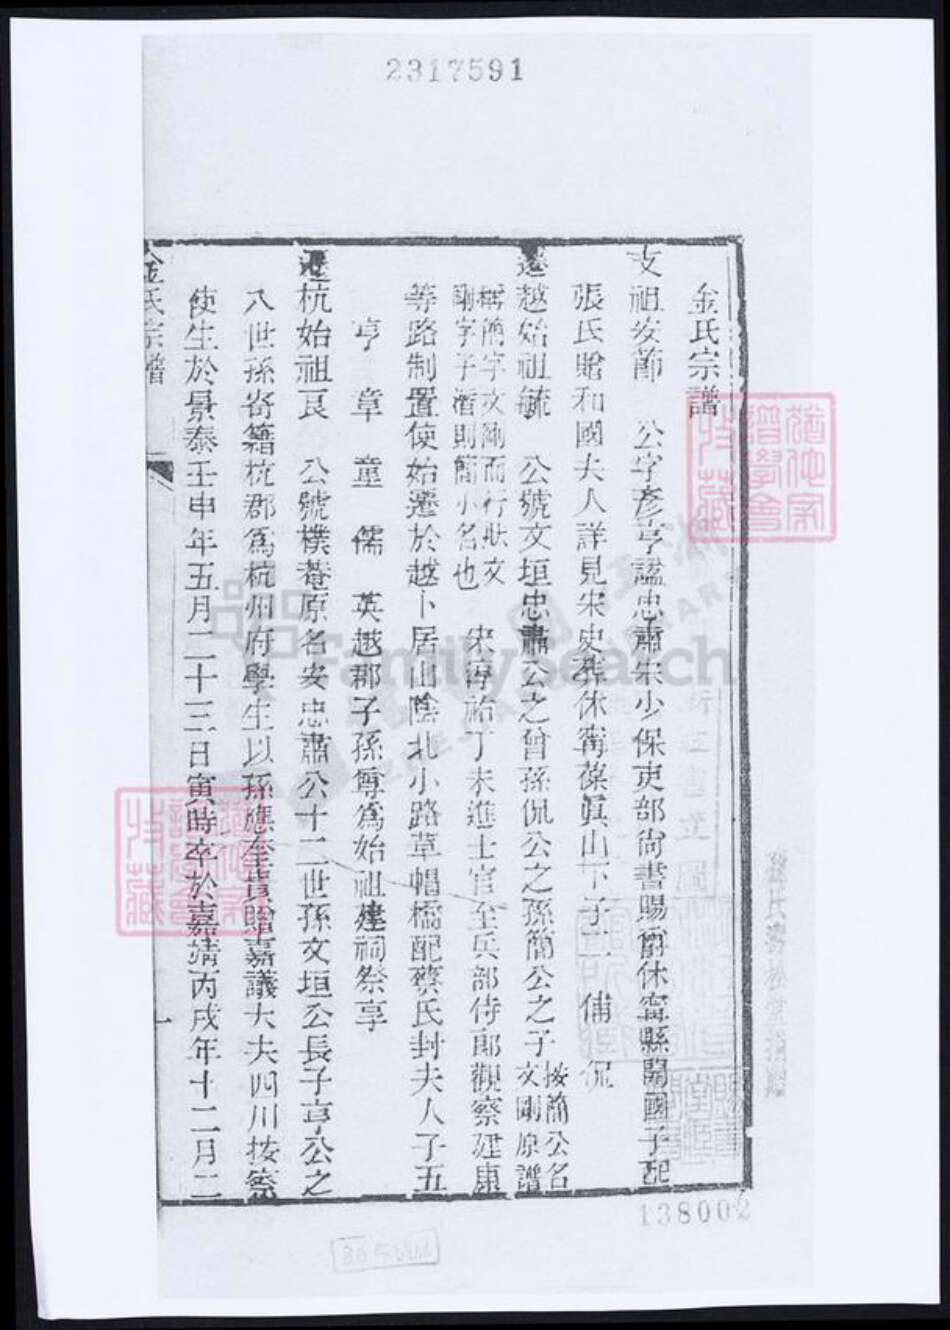 2317591
金氏宗譜
支祖安節　公字彥亨諡忠肅宋少保吏部尚書賜爵休甯縣開國子配
張氏贈和國夫人詳見宋史葬休甯葆眞山下子二　俌　侃
遷越始祖毓　公號文垣忠肅公之曾孫侃公之孫簡公之子按簡公名
文剛原譜
稱簡字文剛而行狀文
剛字子潛則簡小名也　宋淳祐丁未進士官至兵部侍郞觀察建康
等路制置使始遷於越卜居山陰北小路草帽橋配蔡氏封夫人子五
亨　章　童　儒　英越郡子孫尊爲始祖建祠祭享
遷杭始祖良　公號樸菴原名安忠肅公十二世孫文垣公長子亨公之
八世孫寄籍杭郡爲杭州府學生以孫應奎貴贈嘉議大夫四川按察
使生於景泰壬申年五月二十三日寅時卒於嘉靖丙戌年十二月二
金氏宗譜
一
138002
FamilySearch